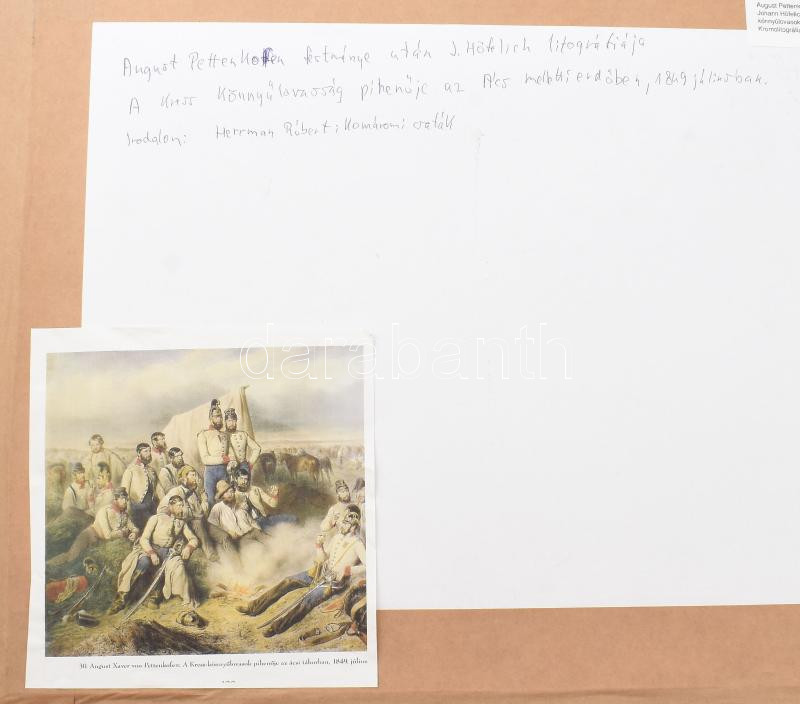 August Pettenkofen festménye után J. Höfelich litográfiája
A Kress könnyűlovasság pihenője az Ács melletti erdőben, 1849 júliusban.
Irodalom: Herrman Róbert: Komáromi csaták
August Pettenk
Johann Höfelic
könnyűlovasok
Kromolitográfia
darabanth
30. August Xaver von Pettenkofen: A Kress-könnyűlovasok pihenője az ácsi táborban, 1849. július